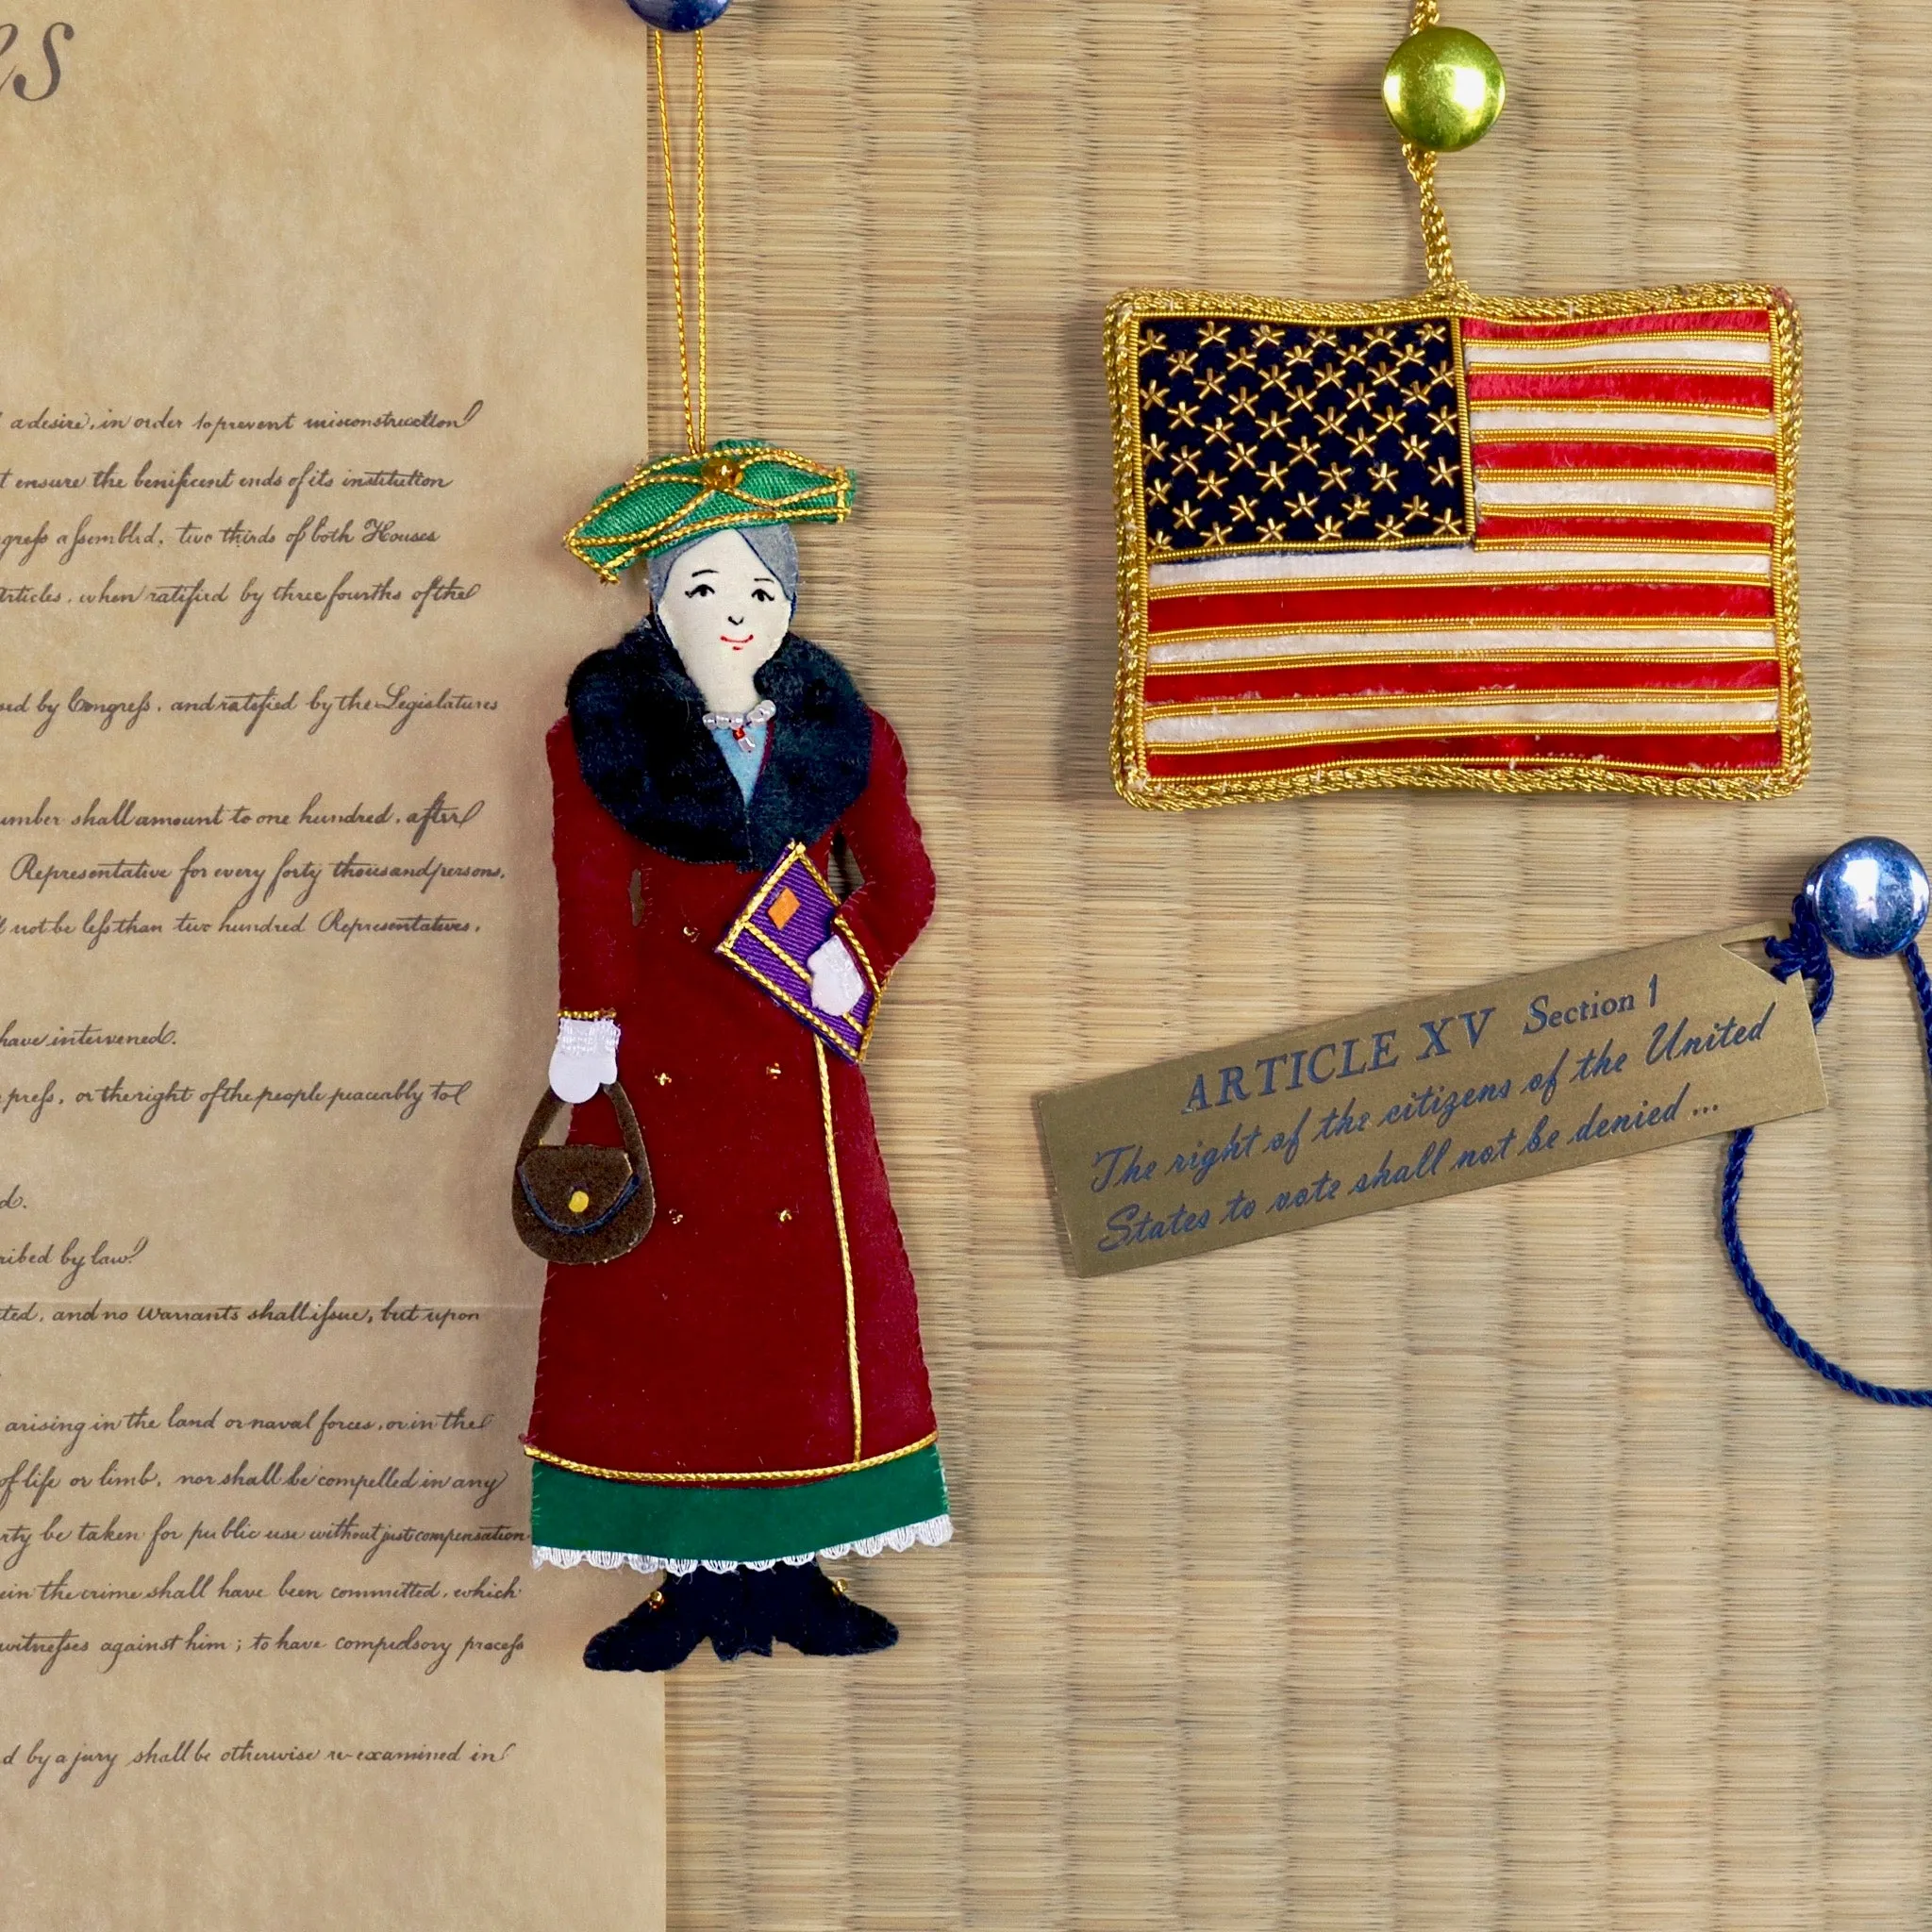 es
a desire, in order to prevent misconstruction
t ensure the benificent ends of its institution
gress assembled, two thirds of both Houses
Articles, when ratified by three fourths of the
sed by Congress, and ratified by the Legislatures
umber shall amount to one hundred, after
Representative for every forty thousand persons,
not be less than two hundred Representatives,
have intervened.
press, or the right of the people peaceably to
d.
ribed by law
ted, and no Warrants shall issue, but upon
arising in the land or naval forces, or in the
of life or limb, nor shall be compelled in any
rty be taken for public use without just compensation
ein the crime shall have been committed, which
witnesses against him; to have compulsory process
d by a jury shall be otherwise re-examined in
ARTICLE XV Section 1
The right of the citizens of the United
States to vote shall not be denied ...